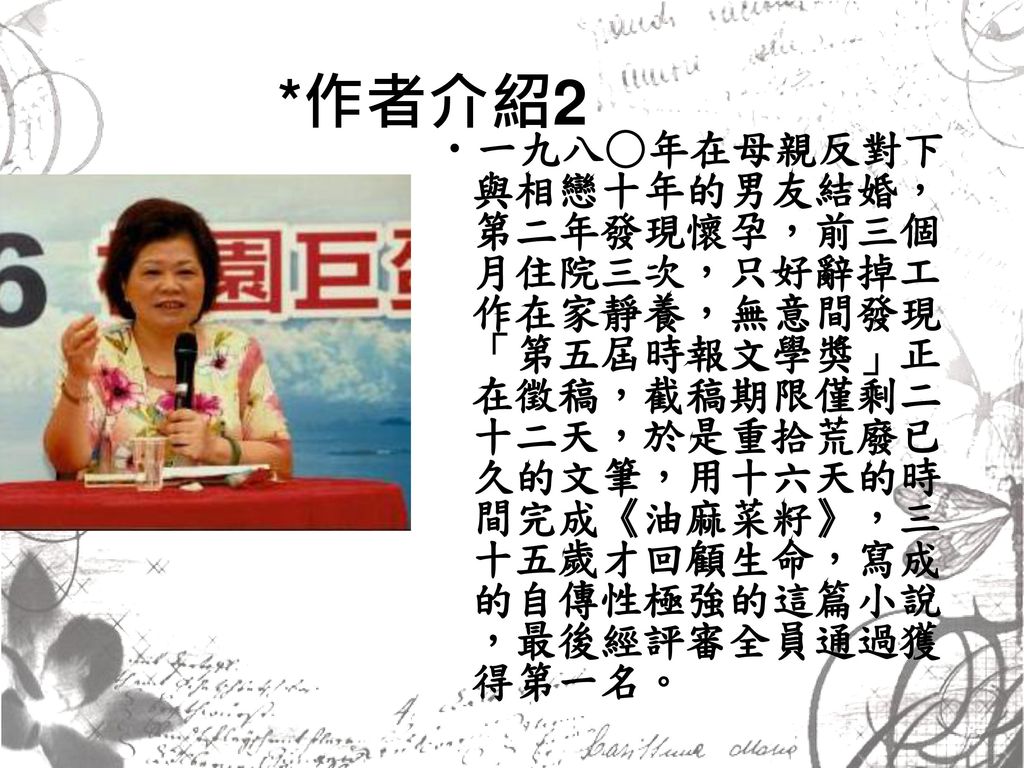 *作者介紹2
•一九八○年在母親反對下
與相戀十年的男友結婚，
第二年發現懷孕，前三個
月住院三次，只好辭掉工
作在家靜養，無意間發現
「第五屆時報文學獎」正
在徵稿，截稿期限僅剩二
十二天，於是重拾荒廢已
久的文筆，用十六天的時
間完成《油麻菜籽》，三
十五歲才回顧生命，寫成
的自傳性極強的這篇小說
，最後經評審全員通過獲
得第一名。
6 園巨蛋